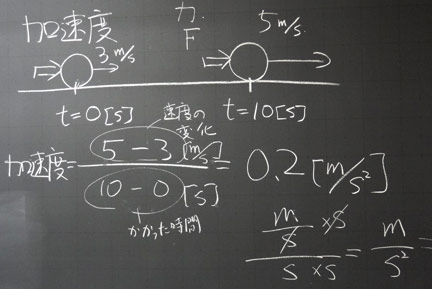 加速度
力.
F
3 m/s
5 m/s.
t=0[s]
t=10[s]
速度の
変化
加速度= (5-3)[m/s] / (10-0)[s] = 0.2 [m/s²]
かかった時間
(m/s × s) / (s × s) = m/s² =